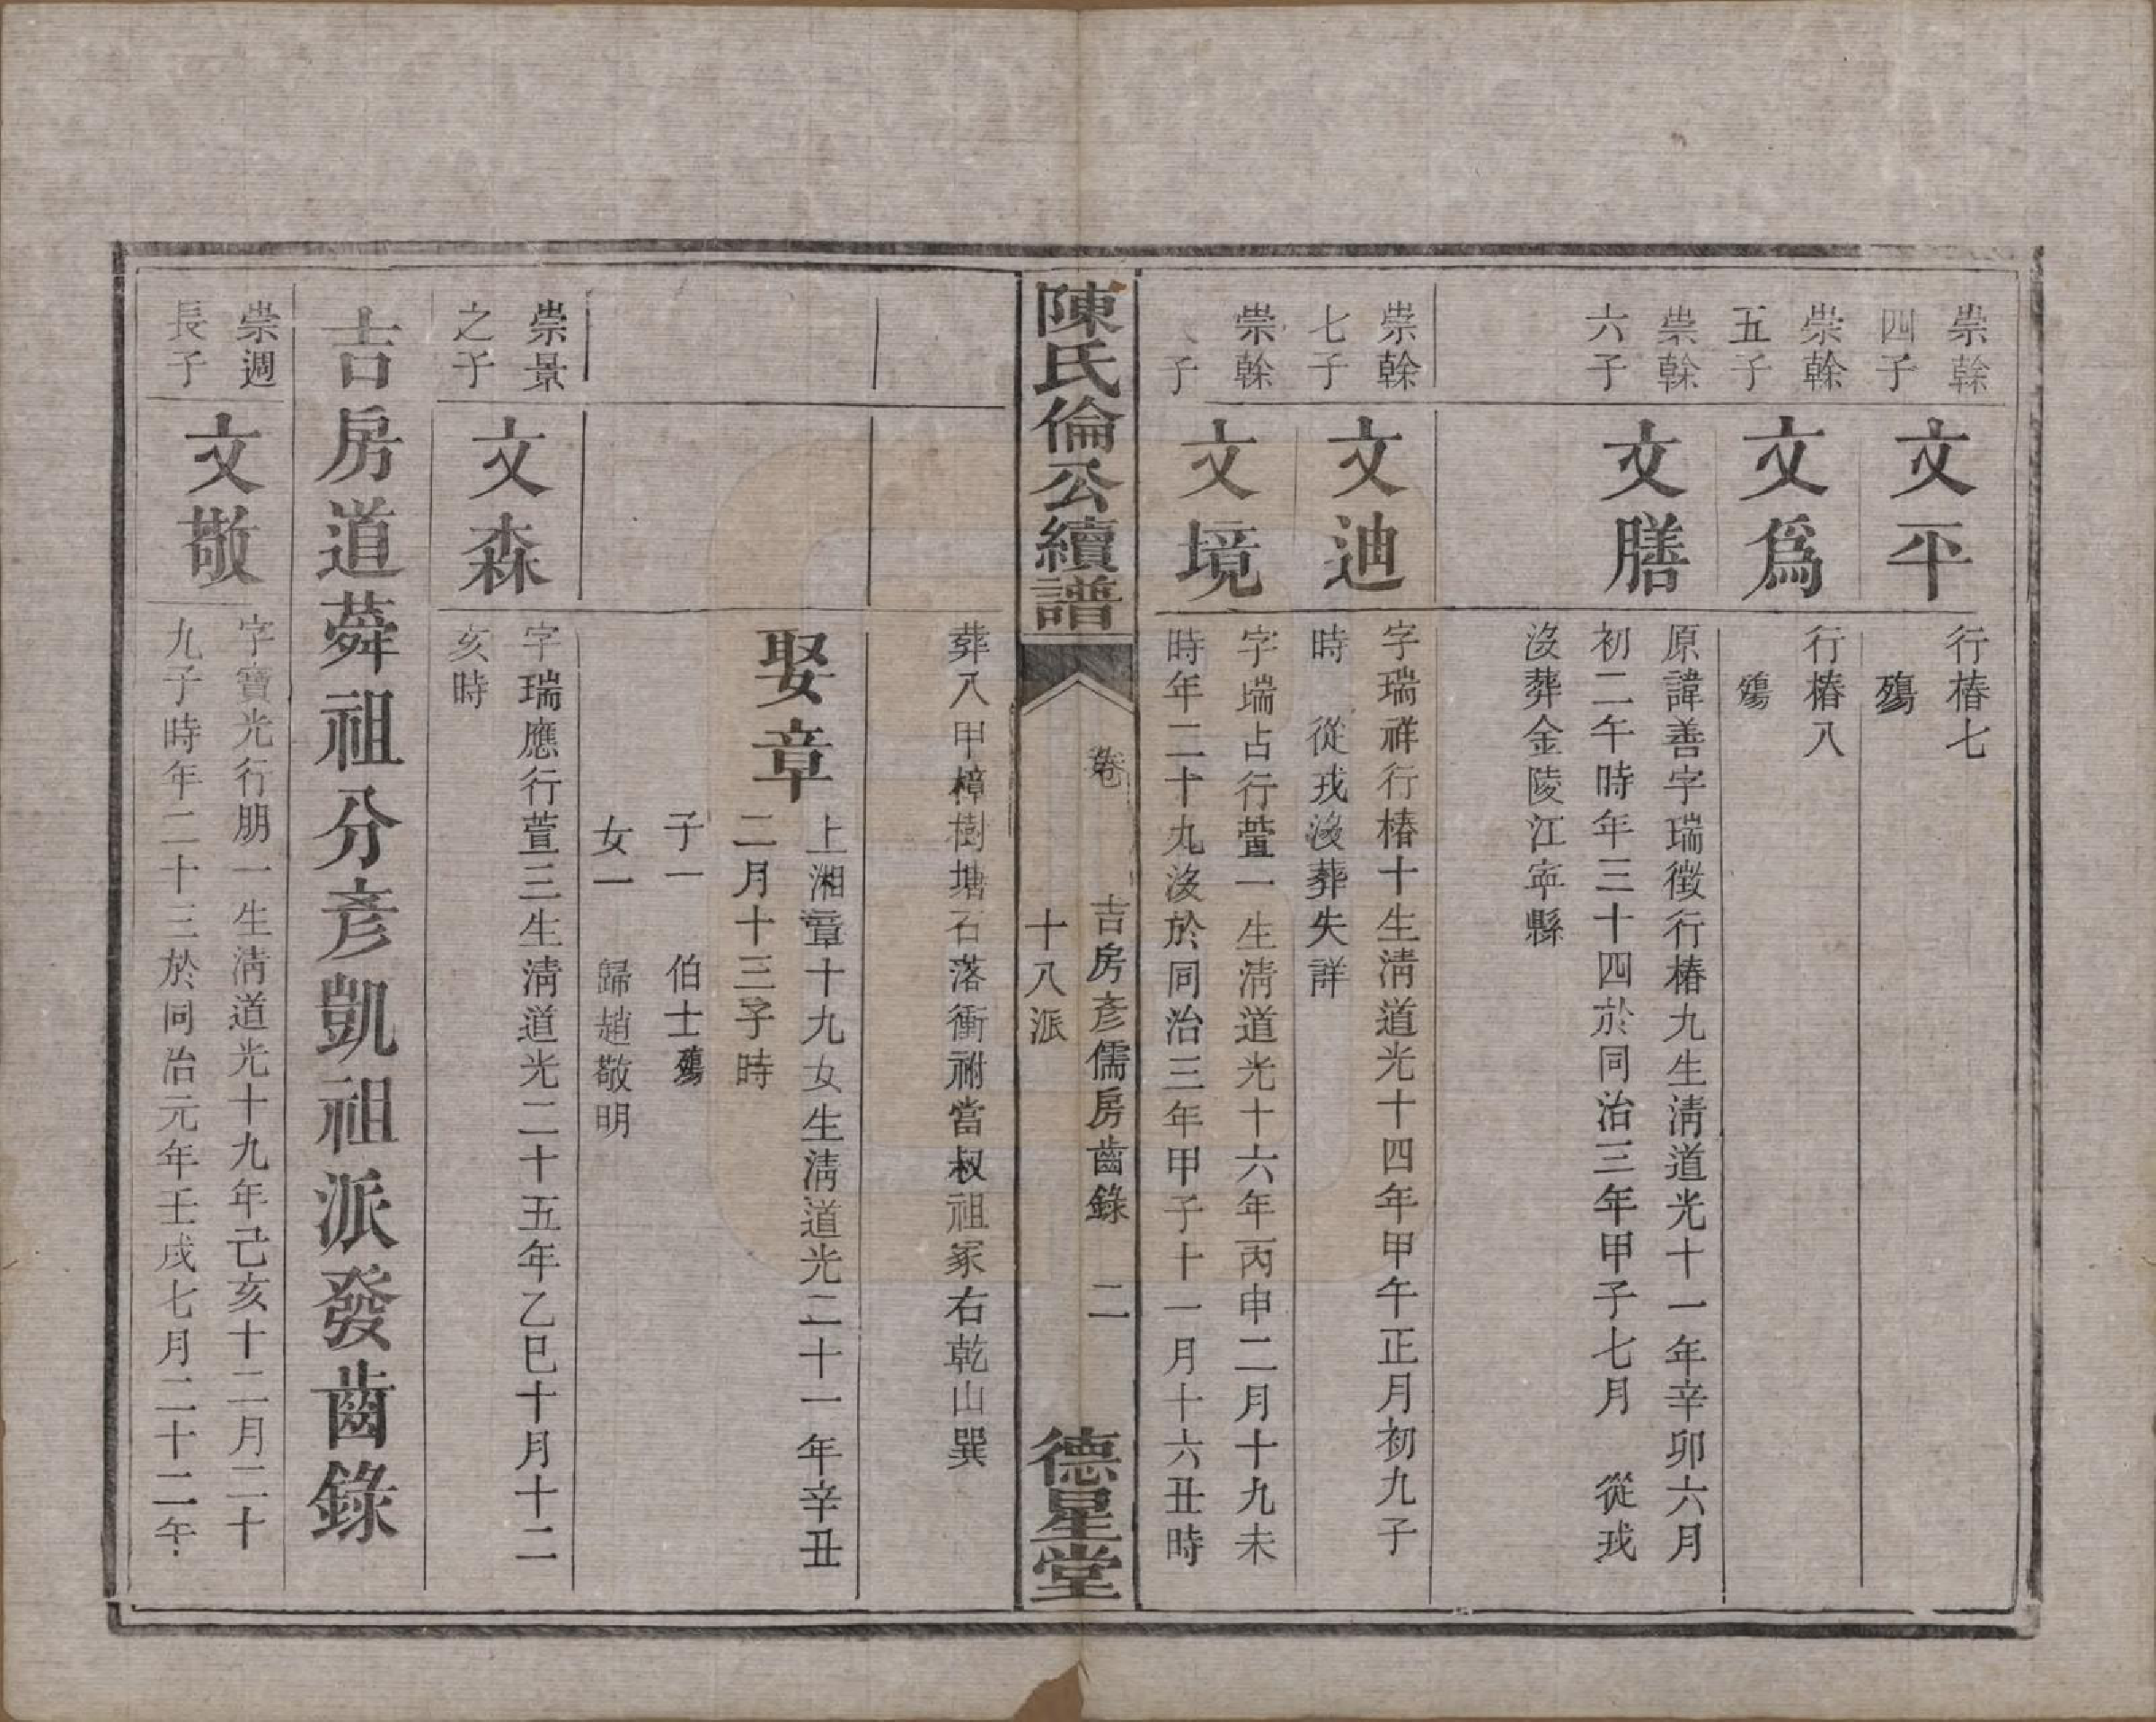 崇榦
四子
文平
行椿七
殤
崇榦
五子
文爲
行椿八
殤
崇榦
六子
文膳
原諱善字瑞徵行椿九生淸道光十一年辛卯六月
初二午時年三十四於同治三年甲子七月 從戎
沒葬金陵江寧縣
崇榦
七子
文迪
字瑞祥行椿十生淸道光十四年甲午正月初九子
時 從戎沒葬失詳
崇榦
子
文境
字瑞占行萱一生淸道光十六年丙申二月十九未
時年二十九沒於同治三年甲子十一月十六丑時
陳氏倫公續譜
卷
吉房彥儒房齒錄 二
十八派
德星堂
葬八甲樟樹塘石落衝祔當叔祖冢右乾山巽
娶章
上湘章十九女生淸道光二十一年辛丑
二月十三子時
子一 伯士殤
女一 歸趙敬明
崇景
之子
文森
字瑞應行萱三生淸道光二十五年乙巳十月十二
亥時
吉房道蕣祖分彥凱祖派發齒錄
崇週
長子
文敬
字寶光行朋一生淸道光十九年己亥十二月二十
九子時年二十三於同治元年壬戌七月二十二午